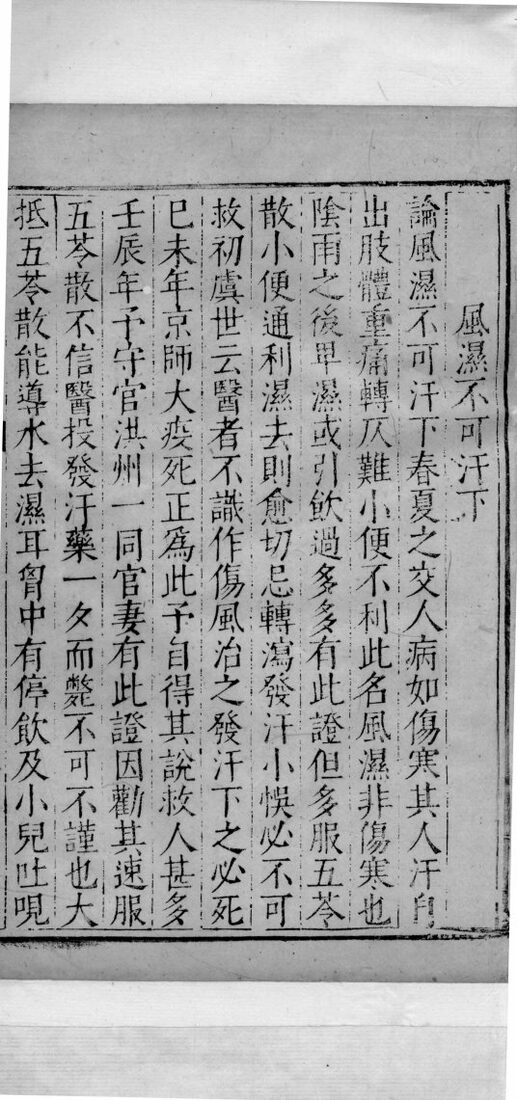 風濕不可汗下
論風濕不可汗下春夏之交人病如傷寒其人汗自
出肢體重痛轉仄難小便不利此名風濕非傷寒也
陰雨之後卑濕或引飲過多多有此證但多服五苓
散小便通利濕去則愈切忌轉瀉發汗小悞必不可
救初虞世云醫者不識作傷風治之發汗下之必死
巳未年京師大疫死正爲此予自得其說救人甚多
壬辰年予守官洪州一同官妻有此證因勸其速服
五苓散不信醫投發汗藥一夕而斃不可不謹也大
抵五苓散能導水去濕耳胷中有停飲及小兒吐哯